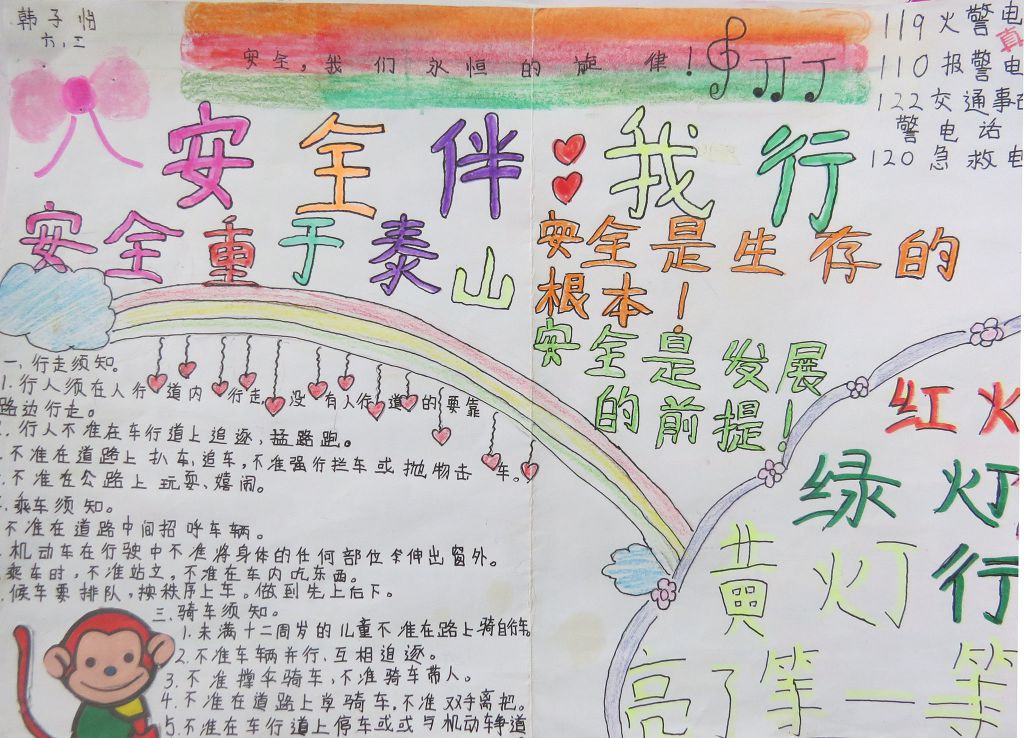 韩子怡
六、二
安全,我们永恒的旋律!
119火警电
110报警电
122交通事故
警电话
120急救电
真
安全伴我行
安全重于泰山
安全是生存的
根本!
安全是发展
的前提!
一、行走须知。
1.行人须在人行道内行走,没有人行道的要靠
路边行走。
2.行人不准在车行道上追逐、猛路跑。
.不准在道路上扒车、追车,不准强行拦车或抛物击车。
.不准在公路上玩耍、嬉闹。
二.乘车须知。
不准在道路中间招呼车辆。
.机动车在行驶中不准将身体的任何部位伸出窗外。
乘车时,不准站立。不准在车内吃东西。
.候车要排队,按秩序上车。做到先上后下。
三.骑车须知。
1.未满十二周岁的儿童不准在路上骑自行车。
2.不准车辆并行、互相追逐。
3.不准撑伞骑车,不准骑车带人。
4.不准在道路上学骑车,不准双手离把。
5.不准在车行道上停车或或与机动车争道
红火
绿灯行
黄灯
亮了等一等